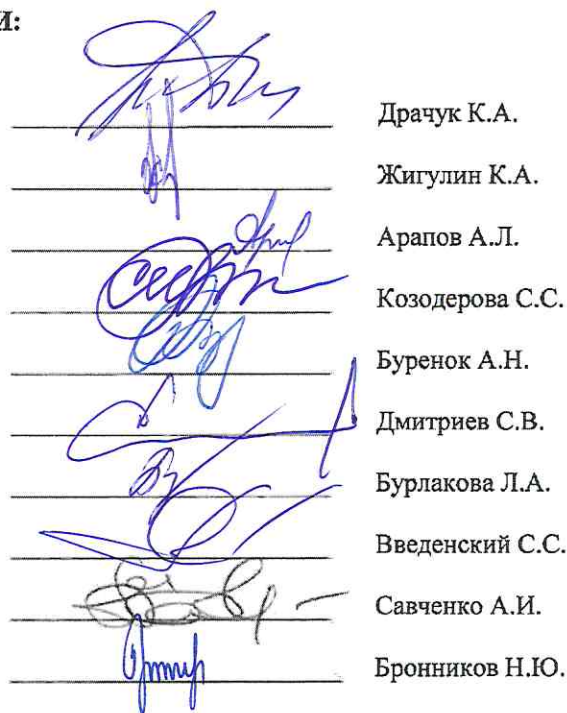 И:
Драчук К.А.
Жигулин К.А.
Арапов А.Л.
Козодерова С.С.
Буренок А.Н.
Дмитриев С.В.
Бурлакова Л.А.
Введенский С.С.
Савченко А.И.
Бронников Н.Ю.